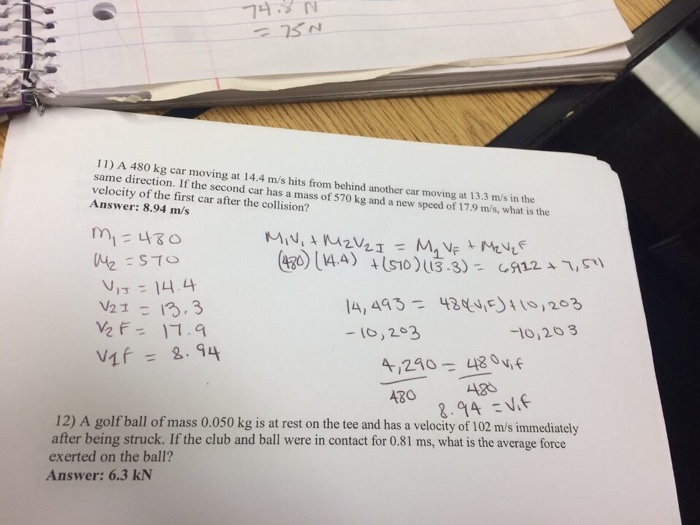 74.8 N
= 75 N
11) A 480 kg car moving at 14.4 m/s hits from behind another car moving at 13.3 m/s in the
same direction. If the second car has a mass of 570 kg and a new speed of 17.9 m/s, what is the
velocity of the first car after the collision?
Answer: 8.94 m/s
m₁ = 480
M₂ = 570
V₁I = 14.4
V₂I = 13.3
V₂F = 17.9
V1f = 8.94
M₁V₁ + M₂V₂I = M₁VF + M₂V₂F
(480)(14.4) + (570)(13.3) = 6912 + 7,581
14,493 = 480(V₁F) + 10,203
-10,203 -10,203
4,290 = 480V₁f
480 480
8.94 = V₁f
12) A golf ball of mass 0.050 kg is at rest on the tee and has a velocity of 102 m/s immediately
after being struck. If the club and ball were in contact for 0.81 ms, what is the average force
exerted on the ball?
Answer: 6.3 kN